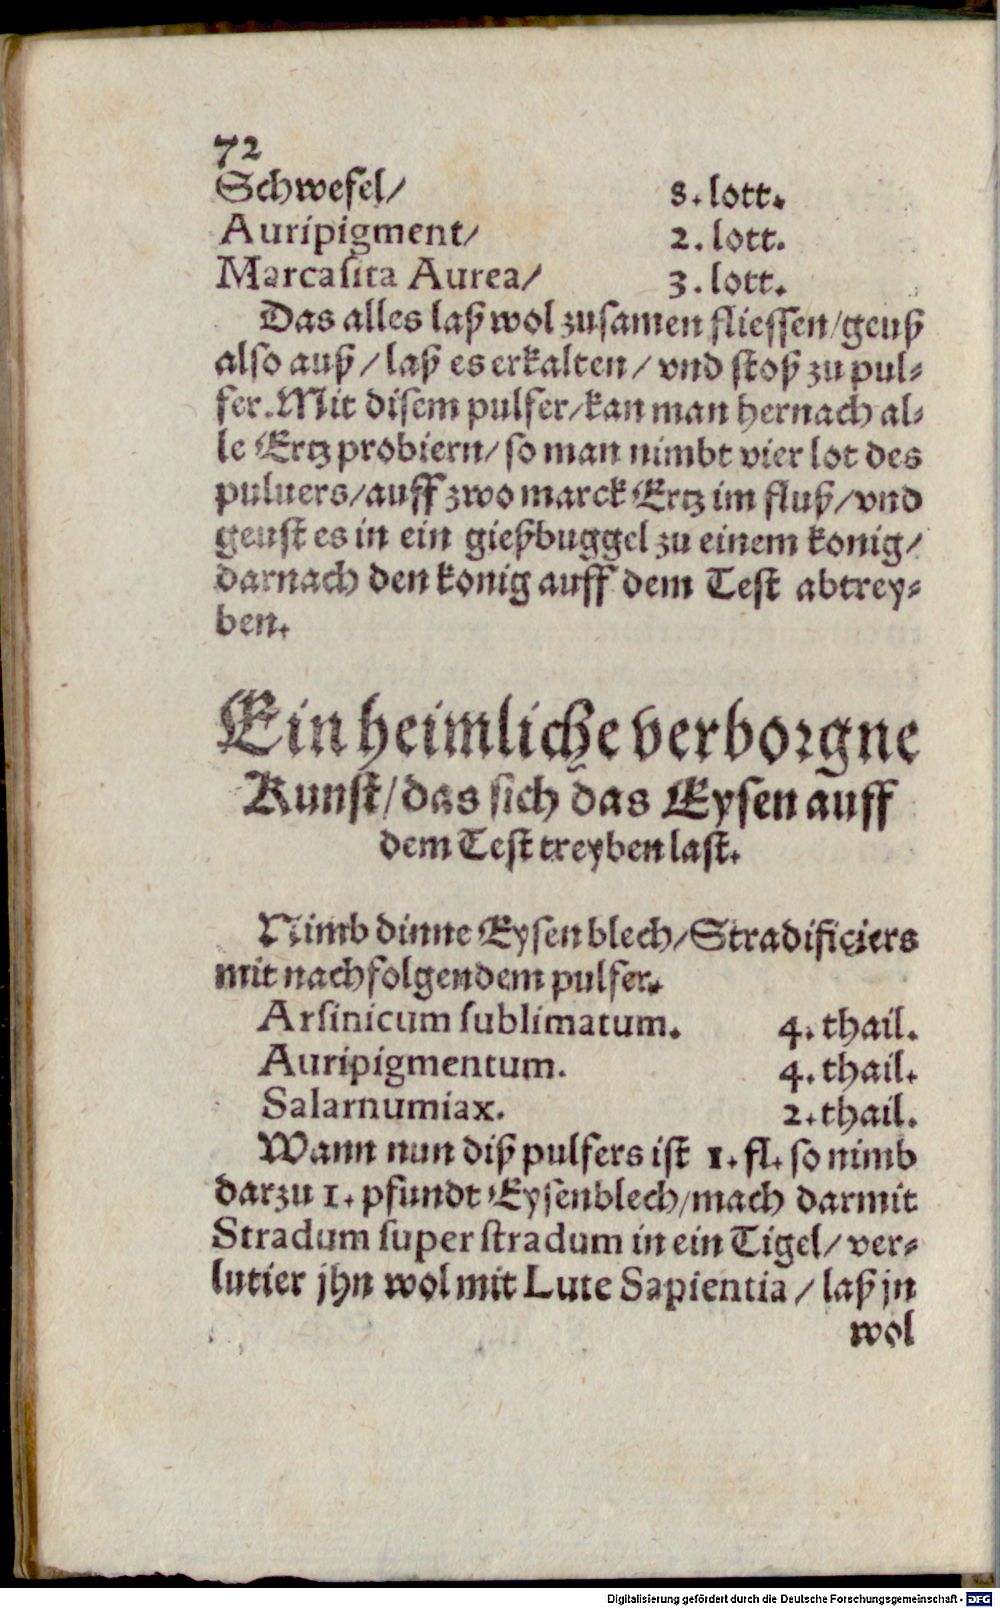 72
Schwefel/ 8. lott.
Auripigment/ 2. lott.
Marcasita Aurea/ 3. lott.
Das alles laß wol zusamen fliessen/geuß
also auß/laß es erkalten/vnd stoß zu pul⸗
fer. Mit disem pulfer/kan man hernach al⸗
le Ertz probiern/so man nimbt vier lot des
puluers/auff zwo marck Ertz im fluß/vnd
geust es in ein gießbuggel zu einem konig/
darnach den konig auff dem Test abtrey⸗
ben.
Ein heimliche verborgne
Kunst/das sich das Eysen auff
dem Test treyben last.
Nimb dinne Eysen blech/Stradificiers
mit nachfolgendem pulfer.
Arsinicum sublimatum. 4. thail.
Auripigmentum. 4. thail.
Salarnumiax. 2. thail.
Wann nun diß pulfers ist 1. fl. so nimb
darzu 1. pfundt Eysenblech/mach darmit
Stradum super stradum in ein Tigel/ver⸗
lutier jhn wol mit Lute Sapientia/laß jn
wol
Digitalisierung gefördert durch die Deutsche Forschungsgemeinschaft - DFG